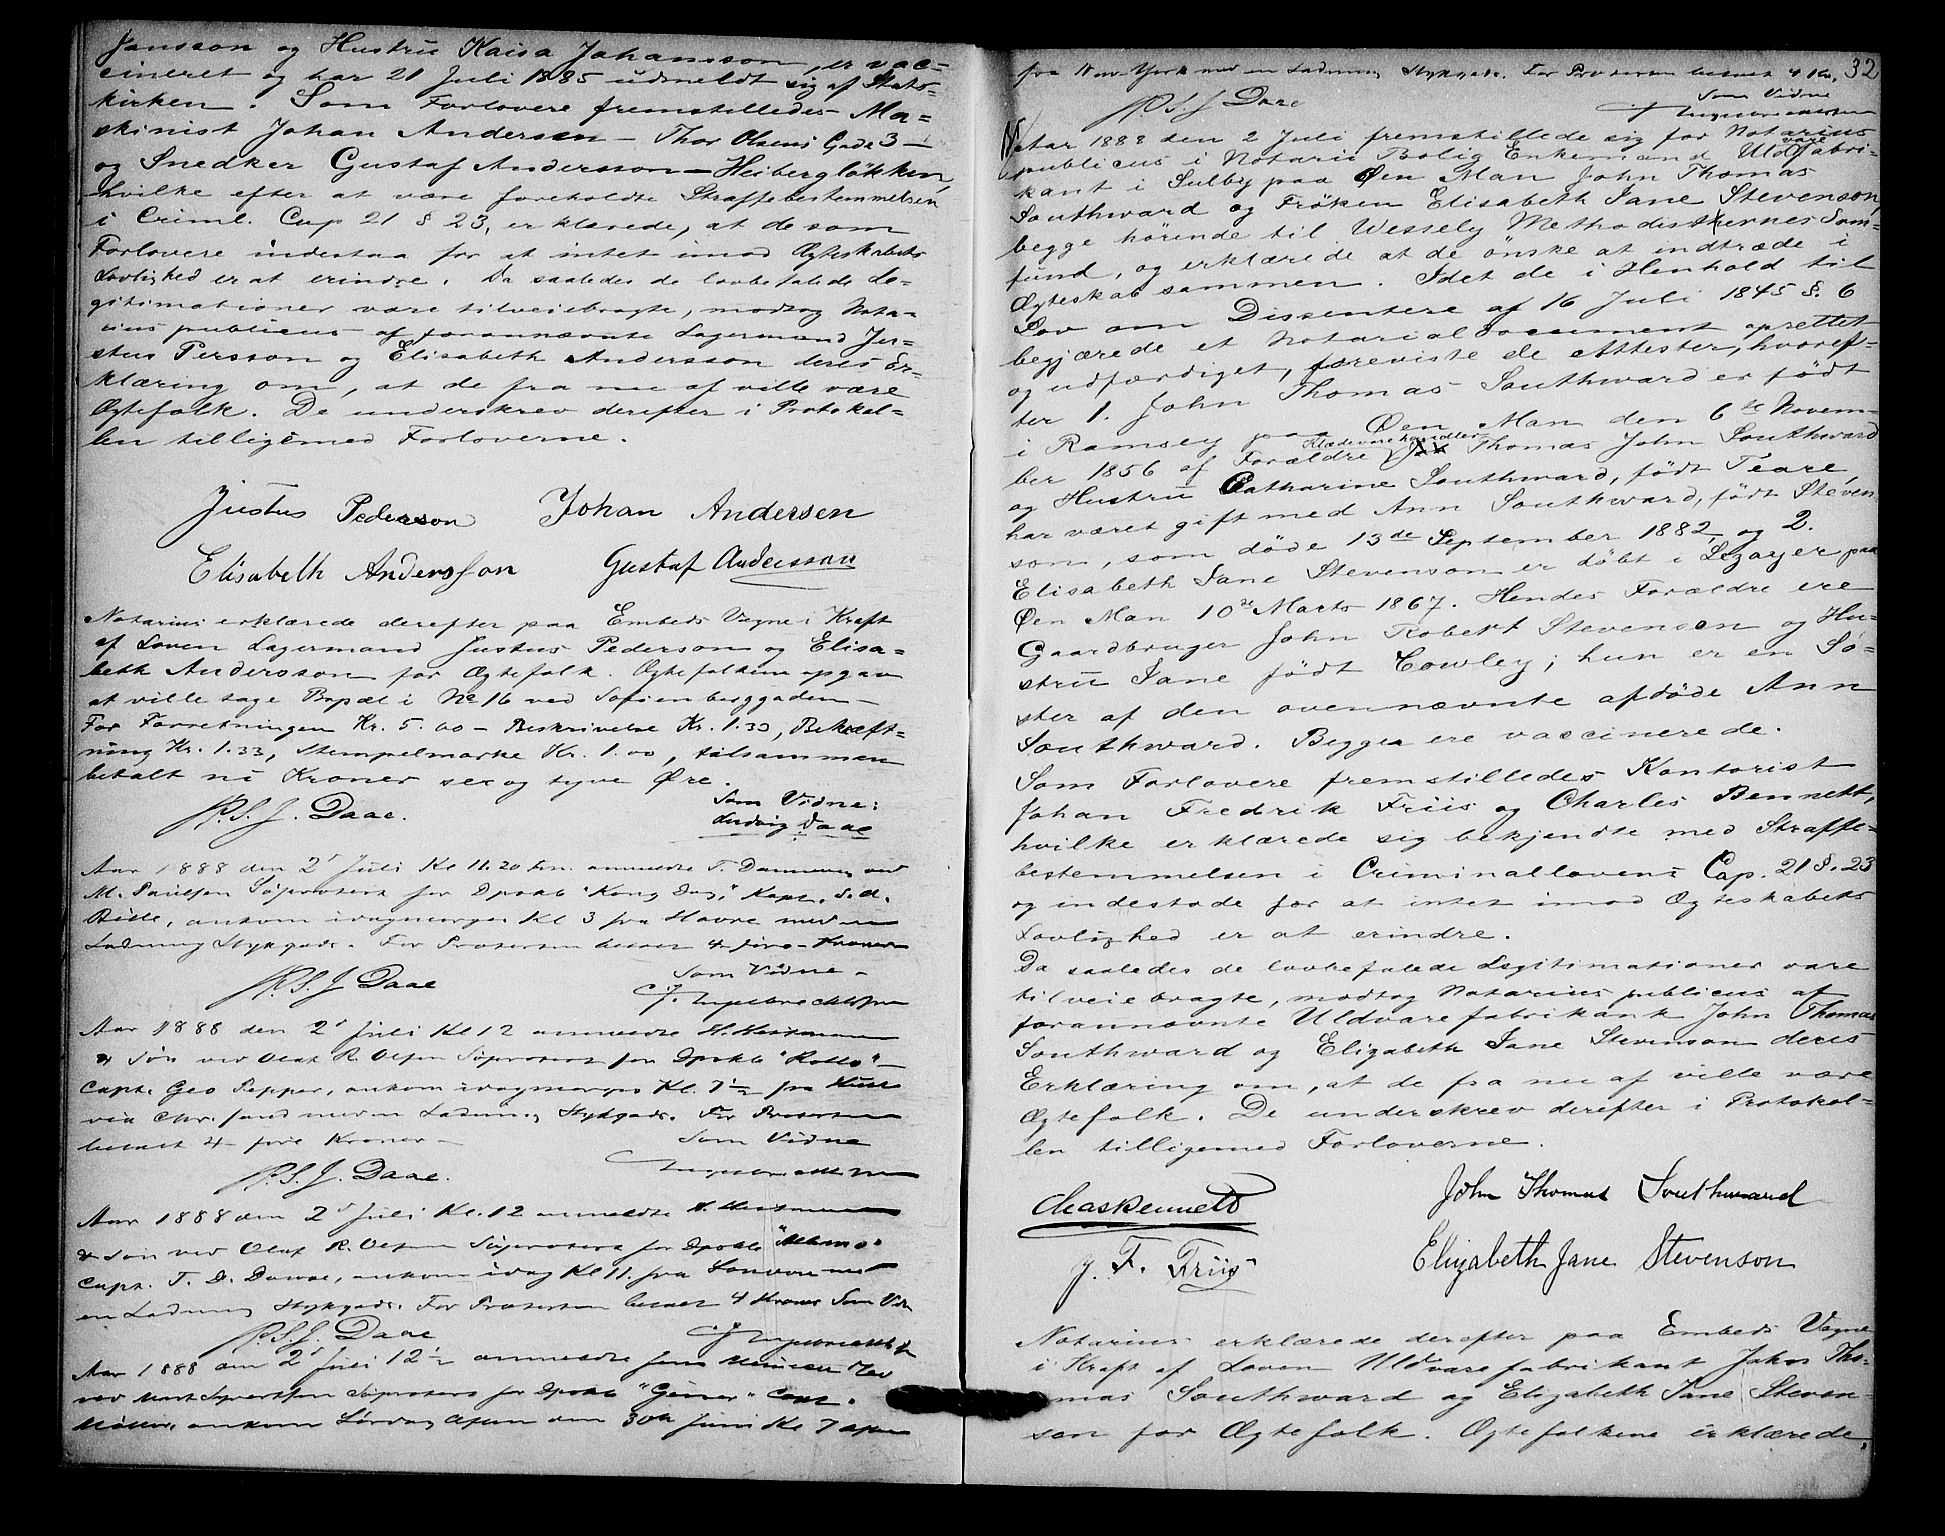 Jansson og Hustru Kaisa Johansson, er vac-
cineret og har 21 Juli 1885 udmeldt sig af Stats-
kirken. Som Forlovere fremstilledes Ma-
skinist Johan Andersen – Thor Olsens Gade 3 –
og Snedker Gustaf Andersson – Heibergløkken,
hvilke efter at være foreholdte Straffebestemmelsen
i Criml. Cap 21 § 23, erklærede, at de som
Forlovere indestaa for at intet imod Ægteskabets
Lovlighed er at erindre. Da saaledes de lovbefalede Le-
gitimationer vare tilveiebragte, modtog Nota-
rius publicus af forannævnte Lagermand Ju-
stus Persson og Elisabeth Andersson deres Er-
klæring om, at de fra nu af ville være
Ægtefolk. De underskrev derefter i Protokol-
len tilligemed Forloverne.
Justus Pederson Johan Andersen
Elisabeth Andersson Gustaf Andersson
Notarius erklærede derefter paa Embeds Vegne i Kraft
af Loven Lagermand Justus Pederson og Elisa-
beth Andersson for Ægtefolk. Ægtefolkene opgav
at ville tage Bopæl i No 16 ved Sofienberggaden –
For Forretningen Kr. 5.00 – Beskrivelse Kr. 1.33, Bekræft-
ning Kr. 1.33, Stempelmarke Kr. 1.00, tilsammen
betalt ni Kroner sex og tyve Øre.
P.S.J. Daae. Som Vidne:
Ludvig Daae
Aar 1888 den 2 Juli Kl 11.20 Fm. anmeldte T. ved
M. Paulsen Søprotest for Dpskb "Kong Dag," Kapt. S. A.
Bille, ankom idagmorges Kl 3 fra Havre med en
Ladning Stykgods. For Protesten betalt 4 fire Kroner
P.S.J Daae Som Vidne –
C.J. Ingebrechtsen
Aar 1888 den 2 Juli Kl 12 anmeldte H. Heitmann
& Søn ved Olaf R. Olsen Søprotest for Dpskb "Rollo" –
Capt. Geo Pepper, ankom idagmorges Kl. 7½ fra Hull
via Chr.sand med en Ladning Stykgods. For Protesten
betalt 4 – fire Kroner – Som Vidne
P.S.J. Daae. Ingebrechtsen
Aar 1888 den 2 Juli Kl. 12 anmeldte H. Heitmann
& Søn ved Olaf R. Olsen Søprotest for Dpskb
Capt. T. D. ankom idag Kl 11. fra London med
en Ladning Stykgods. For Protesten betalt 4 Kroner Som Vidne
P.S.J. Daae C J Ingebrechtsen
Aar 1888 den 2 Juli 12½ anmeldte Jens
ved Søprotest for Dpskb "Geiser" Capt.
Møller, ankom Lørdag Aften den 30te Juni Kl 7 aften
32
fra New York med en Ladning Stykgods. For Protesten betalt 4 Kr.
P.S.J Daae Som Vidne
Ingebrechtsen
Aar 1888 den 2 Juli fremstillede sig for Notarius
publicus i Notarii Bolig Enkemand Uldvarefabri-
kant i Sulby paa Øen Man John Thomas
Southward og Frøken Elisabeth Jane Stevenson,
begge hørende til Wesley Methodisternes Sam-
fund, og erklærede at de ønske at indtræde i
Ægteskab sammen. Idet de i Henhold til
Lov om Dissentere af 16 Juli 1845 §. 6
begjærede et Notarialdocument oprettet
og udfærdiget, foreviste de Attester, hvoref-
ter 1. John Thomas Southward er født
i Ramsey paa Øen Man den 6te Novem-
ber 1856 af Forældre Klædevarehandler Thomas John Southward
og Hustru Catharine Southward, født Teare,
har været gift med Ann Southward, født Steven-
son, som døde 13de September 1882, og 2.
Elisabeth Jane Stevenson er døbt i Lezayer paa
Øen Man 10de Marts 1867. Hendes Forældre ere
Gaardbruger John Robert Stevenson og Hu-
stru Jane født Cowley; hun er en Sø-
ster af den ovennævnte afdøde Ann
Southward. Begge ere vaccinerede.
Som Forlovere fremstilledes Kontorist
Johan Fredrik Friis og Charles Bennett,
hvilke erklærede sig bekjendte med Straffe-
bestemmelsen i Criminallovens Cap. 21 §. 23
og indestode for at intet imod Ægteskabets
Lovlighed er at erindre.
Da saaledes de lovbefalede Legitimationer vare
tilveiebragte, modtog Notarius publicus af
forannævnte Uldvarefabrikant John Thomas
Southward og Elizabeth Jane Stevenson deres
Erklæring om, at de fra nu af ville være
Ægtefolk. De underskrev derefter i Protokol-
len tilligemed Forloverne.
Chas Bennett John Thomas Southward
J. F. Friis Elizabeth Jane Stevenson
Notarius erklærede derefter paa Embeds Vegne
i Kraft af Loven Uldvarefabrikant John Tho-
mas Southward og Elizabeth Jane Steven-
son for Ægtefolk. Ægtefolkene erklærede,